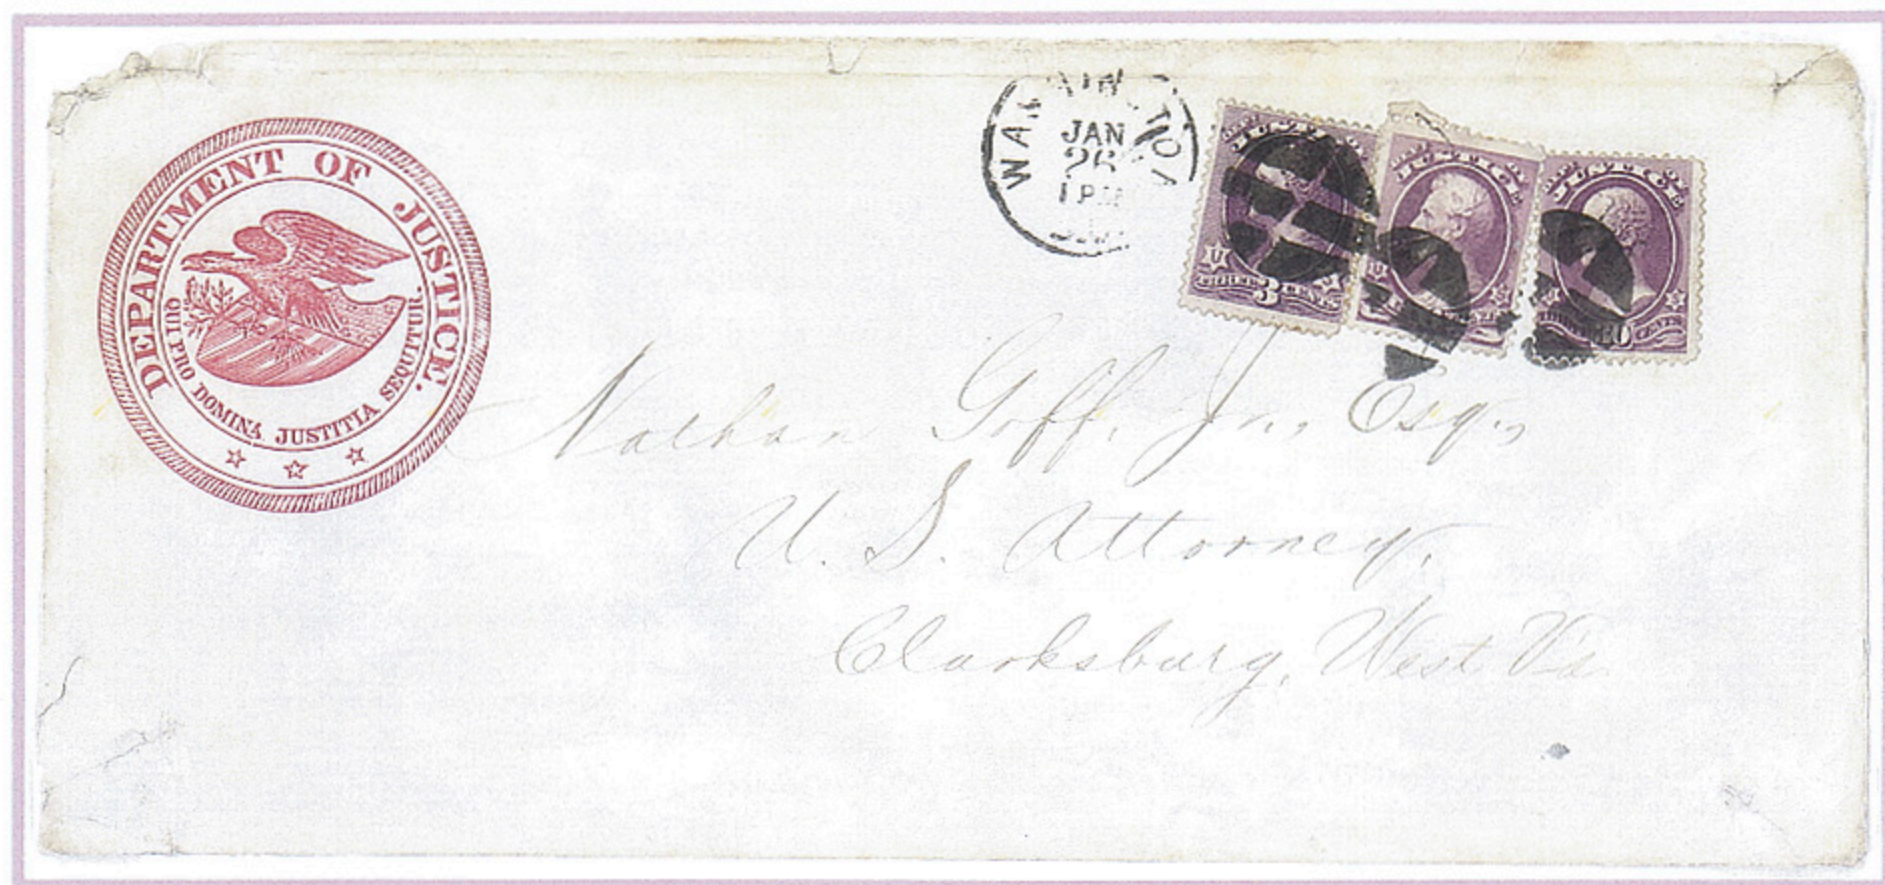 DEPARTMENT OF JUSTICE.
QUI PRO DOMINA JUSTITIA SEQUITUR.
JAN
26
1 PM
JUSTICE
U
THREE 3 CENTS
JUSTICE
JUSTICE
CENTS
Nathan Goff, Jr., Esq.,
U. S. Attorney,
Clarksburg, West Va.